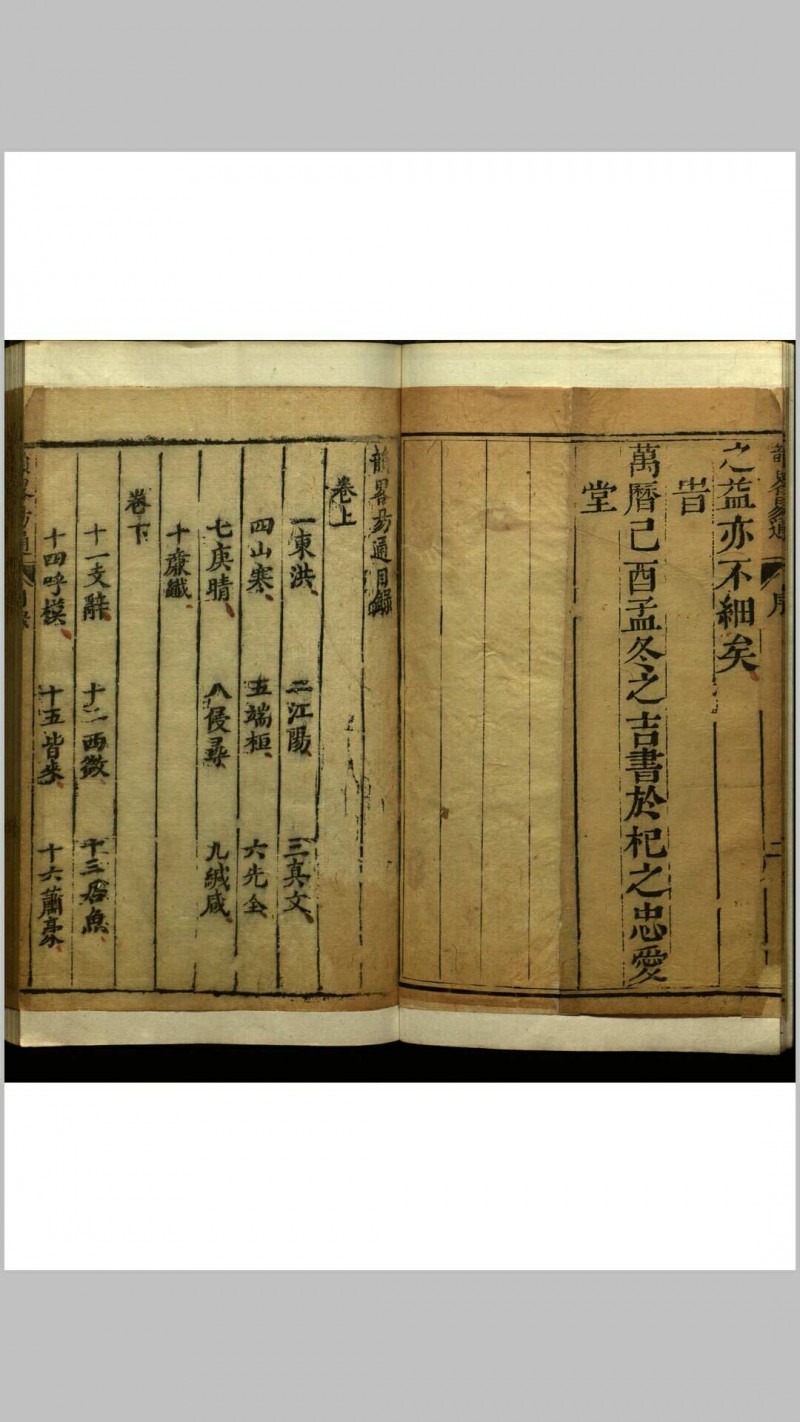 韻畧易通
序
二
之益亦不細矣
旹
萬曆己酉孟冬之吉書於杞之忠愛
堂
韻畧易通目錄
卷上
一東洪 二江陽 三真文
四山寒 五端桓 六先全
七庚晴 八侵尋 九緘咸
十廉纖
卷下
十一支辭 十二西微 十三居魚
十四呼模 十五皆來 十六蕭豪